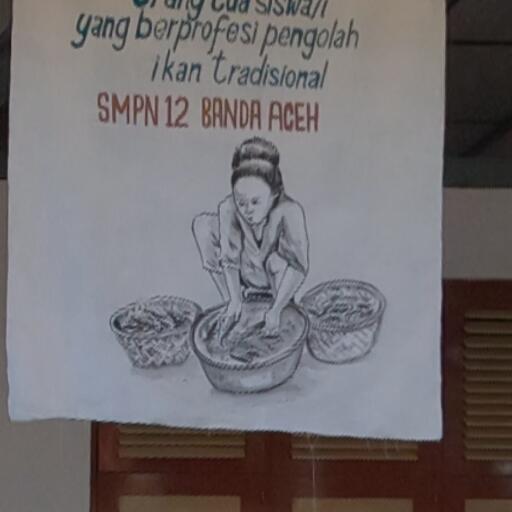 orang tua siswa/i
yang berprofesi pengolah
ikan tradisional
SMPN 12 BANDA ACEH